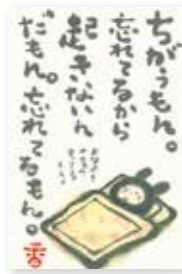 ちがうもん。
忘れてるから
起きないん
だもん。忘れてるもん。